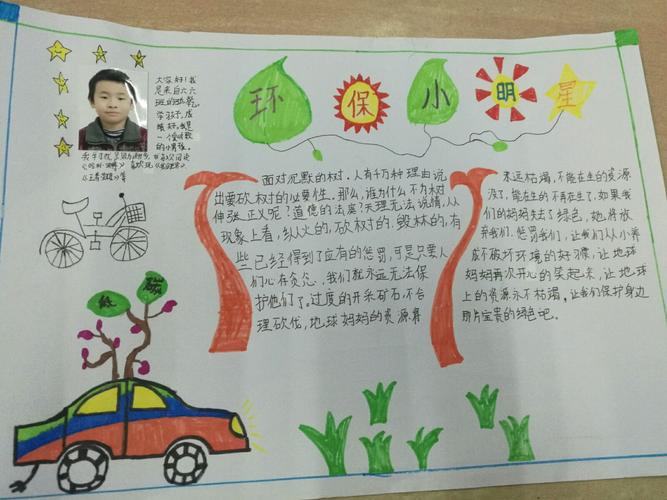 环保小明星
大家好！我
是来自六六
班的
学孩子,成
绩好.我是
一个爱读数
的小男孩。
低碳
面对沉默的树.人有千万种理由说
出要砍树的必要性.那么,谁为什么不为树
伸张正义呢？道德的法庭？天理无法说情,从
现象上看,纵火的,砍树的.毁林的,有
些已经得到了应有的惩罚,可是只要人
们心存贪念,我们就永远无法保
护他们了。过度的开采矿石,不合
理砍伐,地球妈妈的资源将
永远枯竭,不能在生的资源
没了,能在生的不再在生了.如果我
们的妈妈失去了绿色,她将放
弃我们.惩罚我们,让我们从小养
成不破坏环境的好习惯,让地球
妈妈再次开心的笑起来,让地球上
的资源永不枯竭.让我们保护身边
那片宝贵的绿色吧。